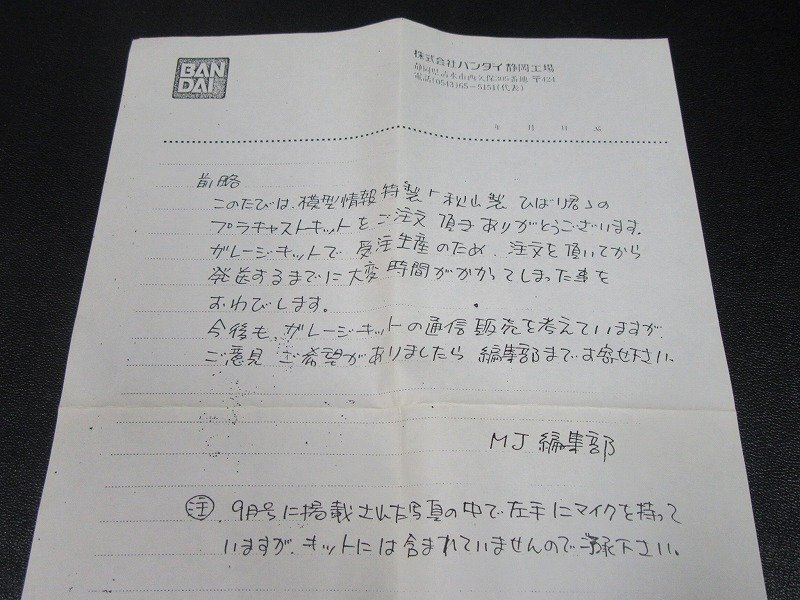 BAN
DAI
株式会社バンダイ静岡工場
静岡県清水市西久保305番地 〒424
電話(0543)65-5151(代表)
年 月 日 №
前略
このたびは、模型情報特製「秋山製 ひばり君」の
プラキャストキットをご注文 頂き ありがとうございます。
ガレージ・キットで 受注生産のため、注文を頂いてから
発送するまでに大変時間がかかってしまった事を
おわびします。
今後も、ガレージ・キットの通信販売を考えていますが
ご意見 ご希望がありましたら 編集部までお寄せ下さい。
MJ 編集部
注 9月号に掲載された写真の中で左手にマイクを持って
いますが、キットには含まれていませんのでご了承下さい。